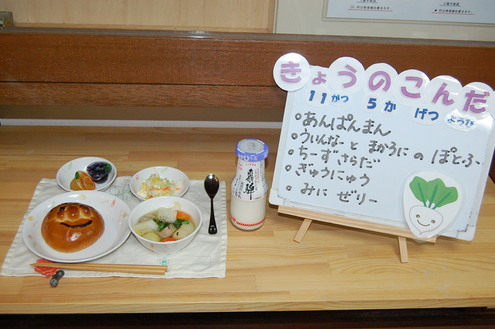 きょうのこんだ
11がつ 5か げつ ようび
。あんぱんまん
。ういんなーと まかろにの ぽとふ
。ちーずさらだ
。ぎゅうにゅう
。みに ぜりー